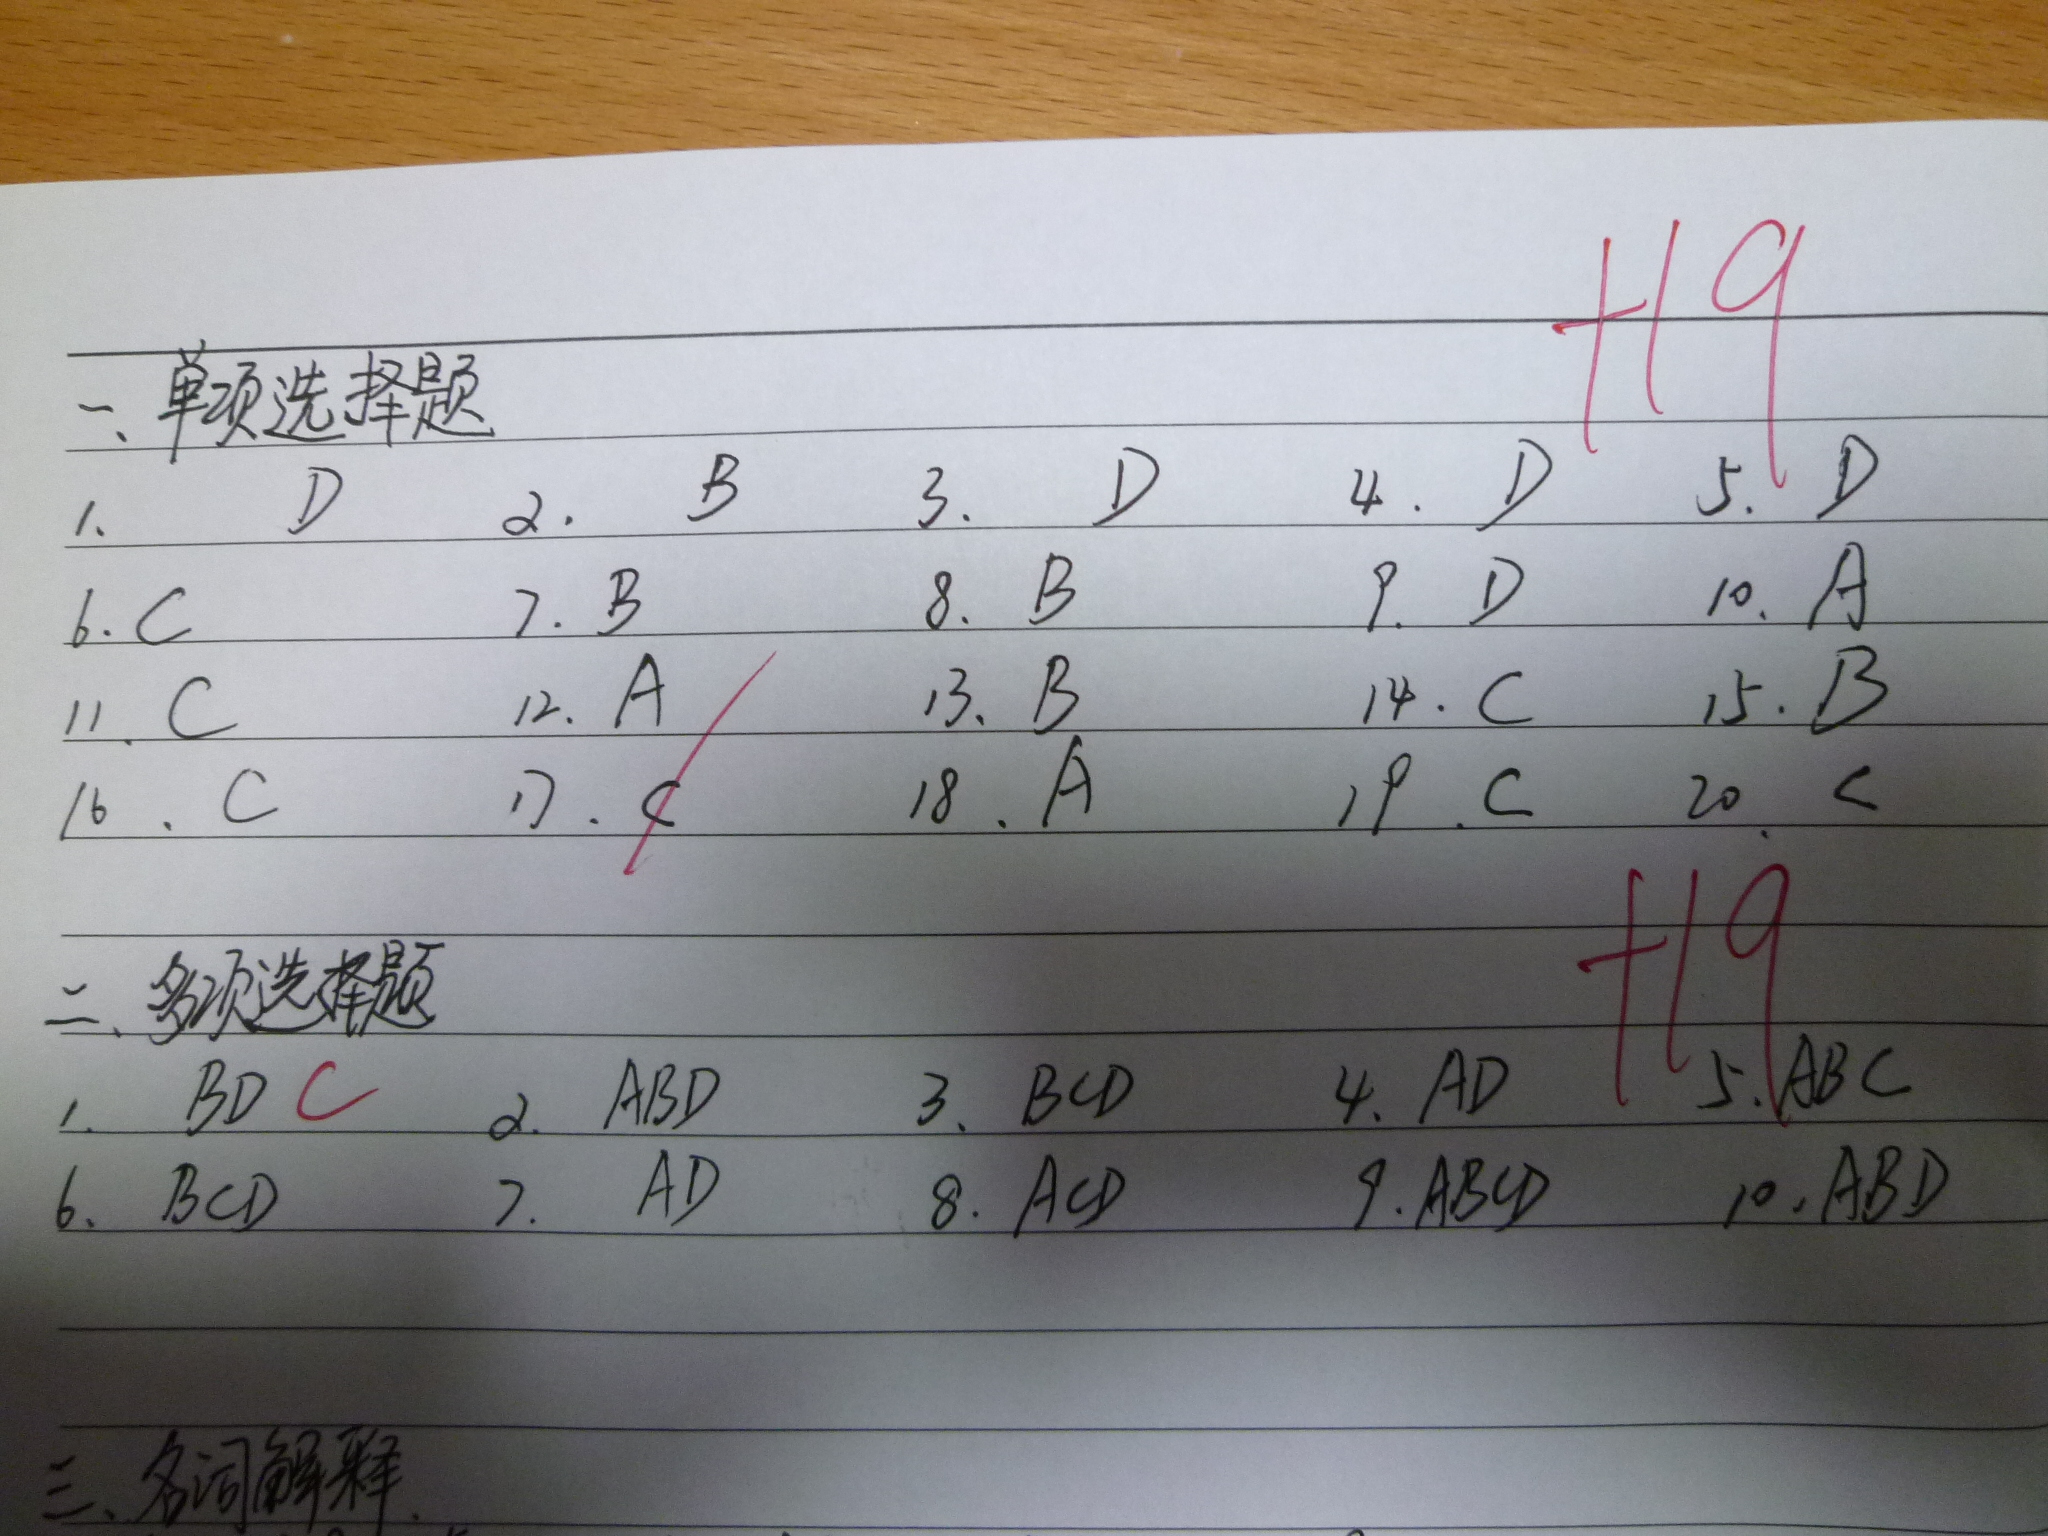 +19
一、单项选择题
1. D 2. B 3. D 4. D 5. D
6. C 7. B 8. B 9. D 10. A
11. C 12. A 13. B 14. C 15. B
16. C 17. C 18. A 19. C 20. C
+19
二、多项选择题
1. BD C 2. ABD 3. BCD 4. AD 5. ABC
6. BCD 7. AD 8. ACD 9. ABCD 10. ABD
三、名词解释.